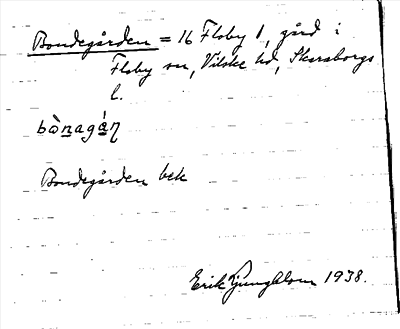 Bondegården = 16 Floby 1, gård i
Floby sn, Vilske hd, Skaraborgs
l.
bò̀nagán
Bondegården bek
Erik Ljungblom 1938.